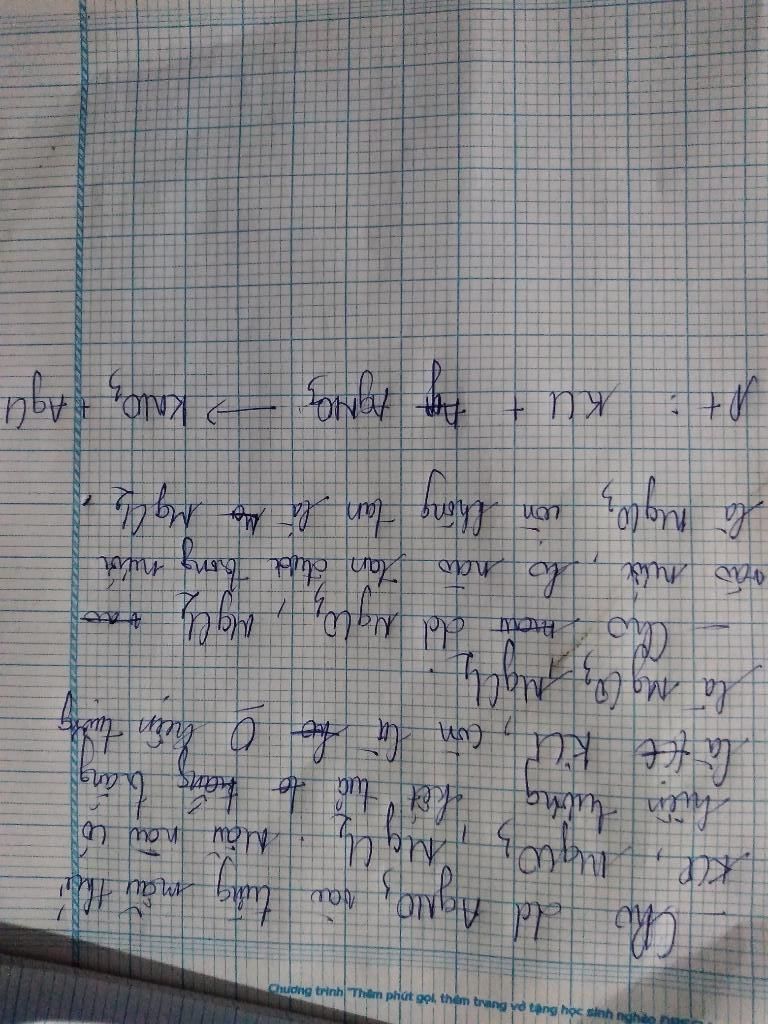 - Cho dd AgNO3 vào từng mẫu thử
KCl, MgCO3, MgCl2. Mẫu nào có
hiện tượng kết tủa trắng
là KCl, còn là 0 hiện tượng
là MgCO3, MgCl2.
- Cho dd MgCO3, MgCl2
vào nước, lọ nào tan được trong nước
là MgCO3 còn không tan là MgCl2.
Pt: KCl + AgNO3 → KNO3 + AgCl
Chương trình "Thêm phút gọi, thêm trang vở tặng học sinh nghèo